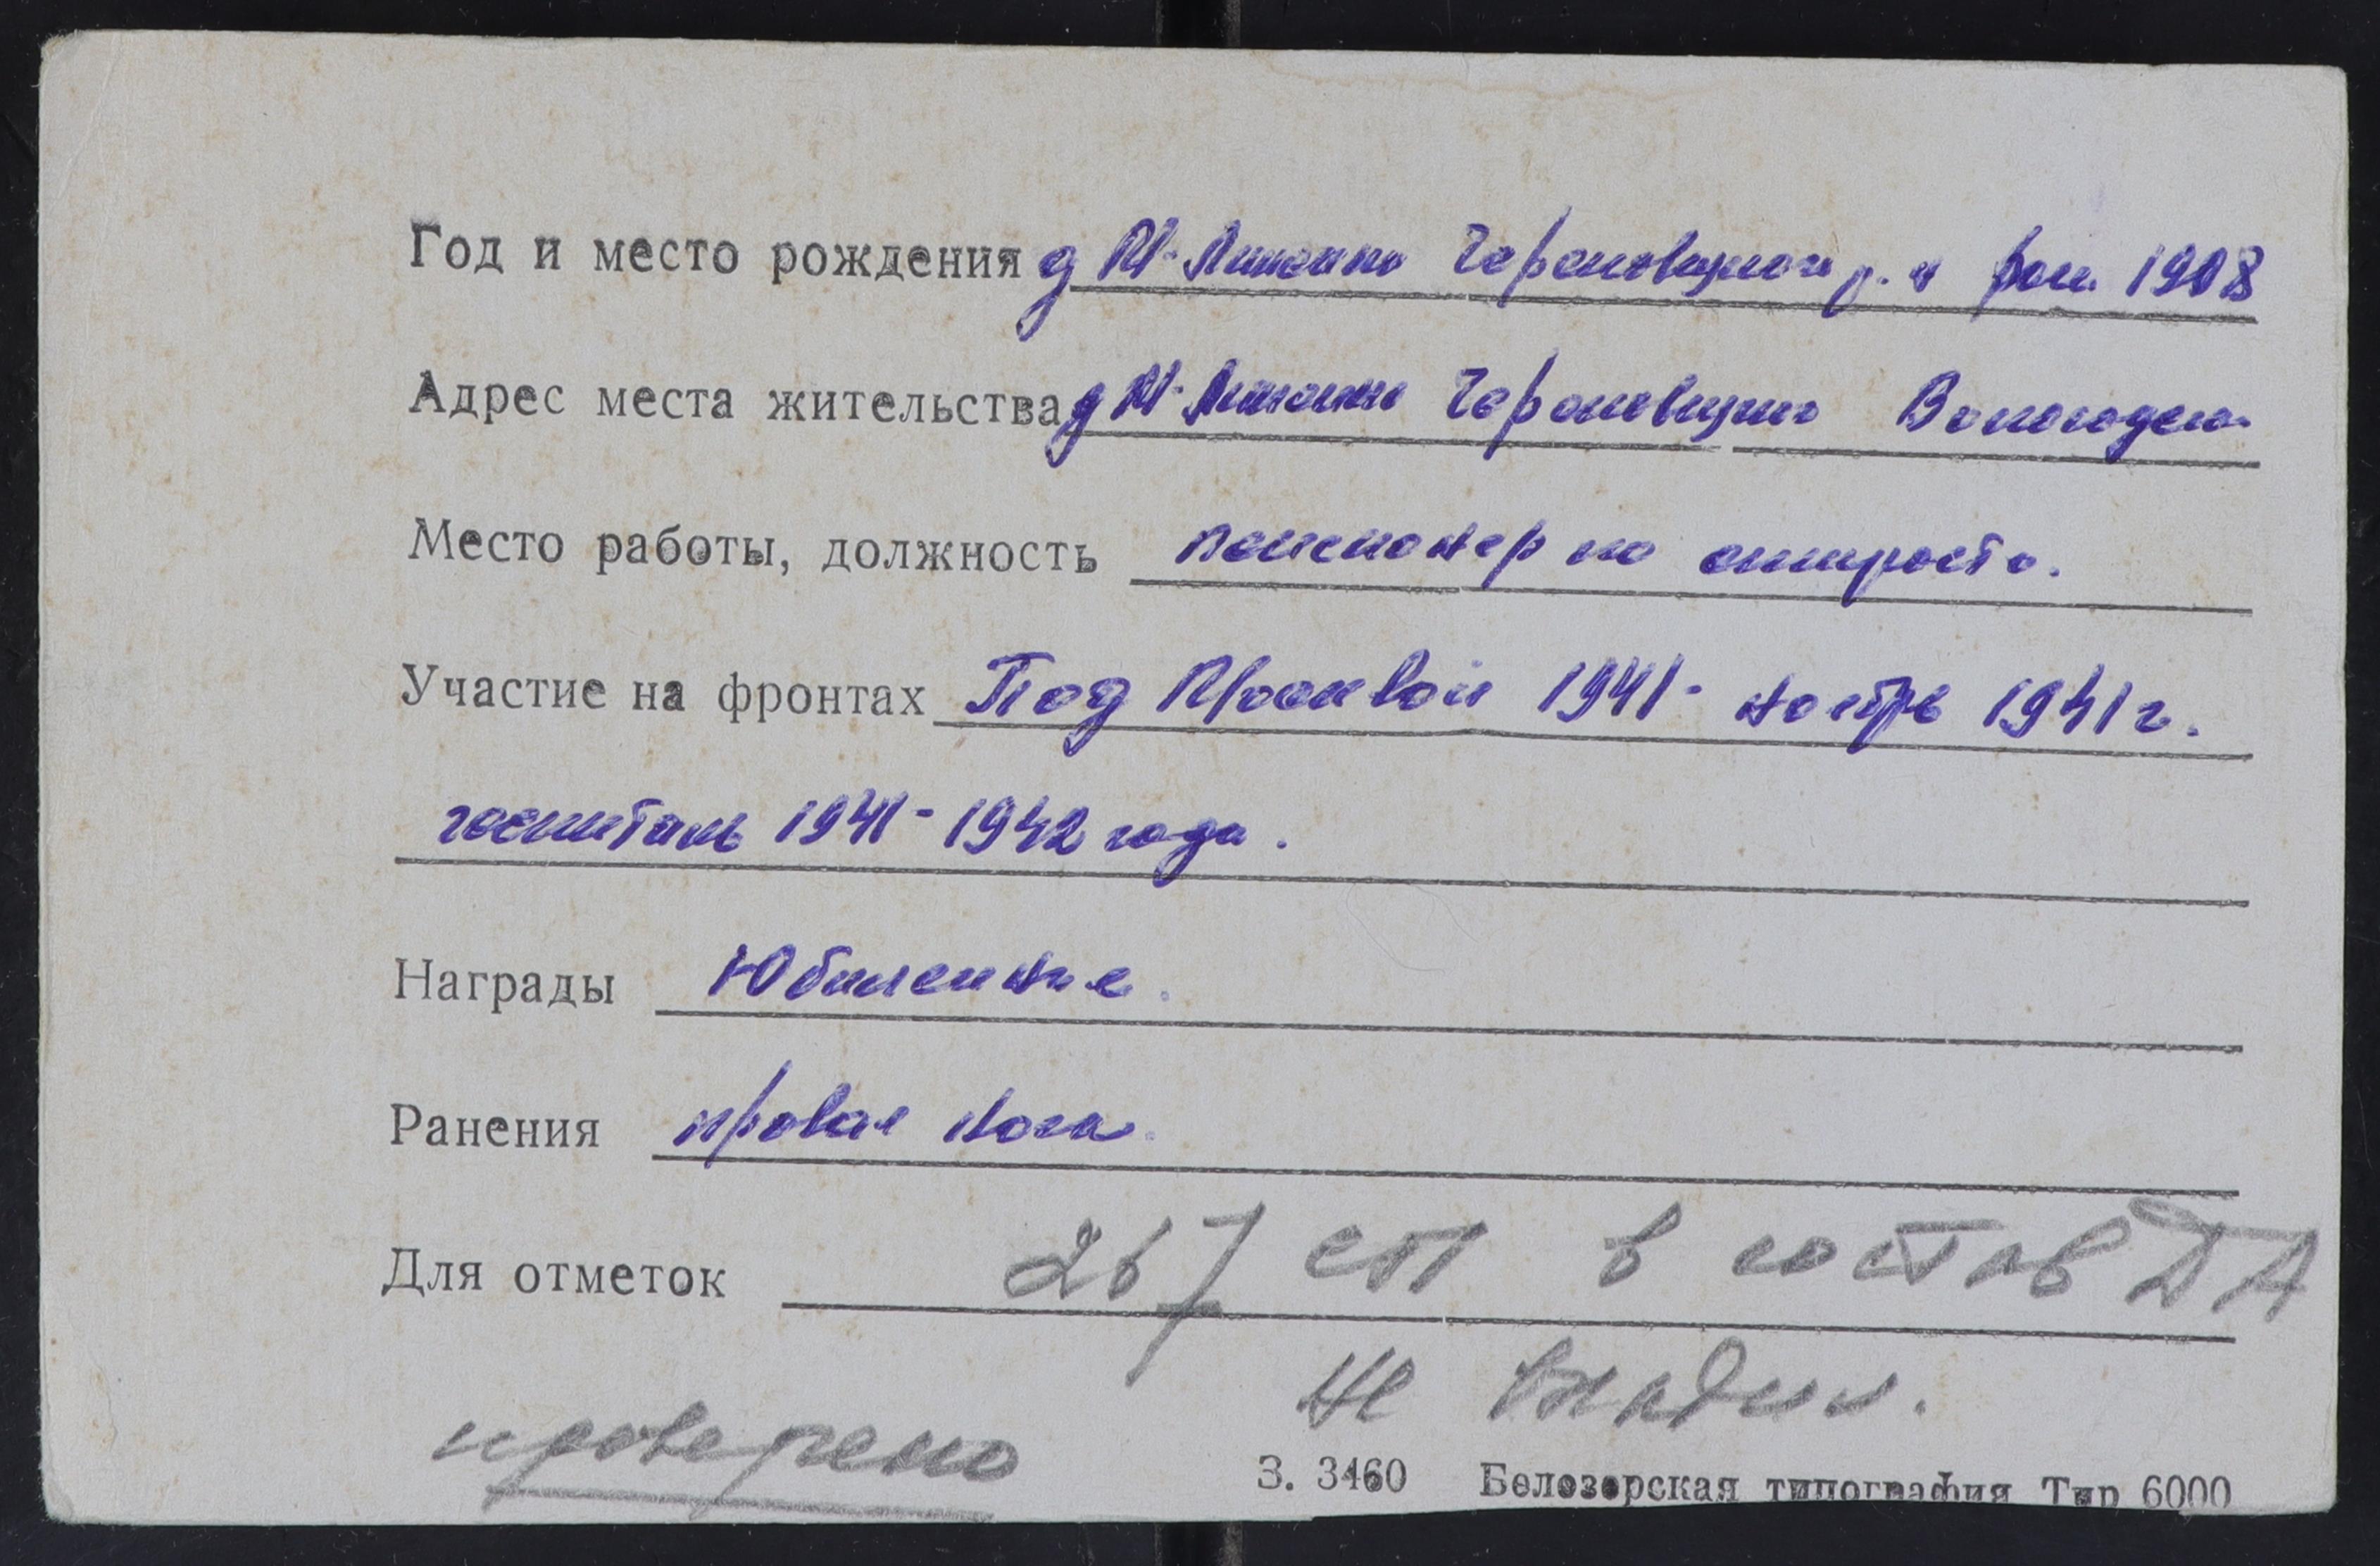 Год и место рождения д М-Липенка Череповецкого р. н рож. 1908
Адрес места жительства д М-Череповецкого Вологодско
Место работы, должность пенсионер по старости.
Участие на фронтах Под Москвой 1941- ноябрь 1941 г.
госпиталь 1941-1942 года.
Награды Юбилейные.
Ранения правая нога.
Для отметок 267 сп в состав ДА
не входил.
проверено
З. 3460 Белозерская типография Тир 6000